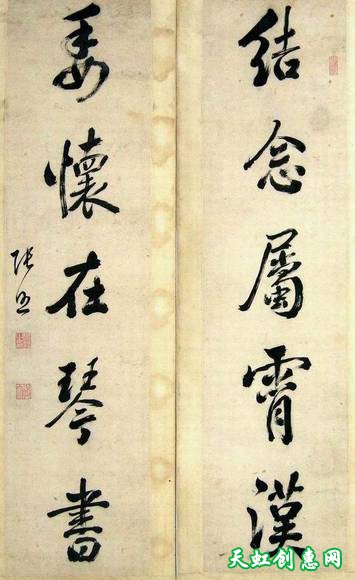 結念屬霄漢
委懷在琴書
張照
天虹创惠网